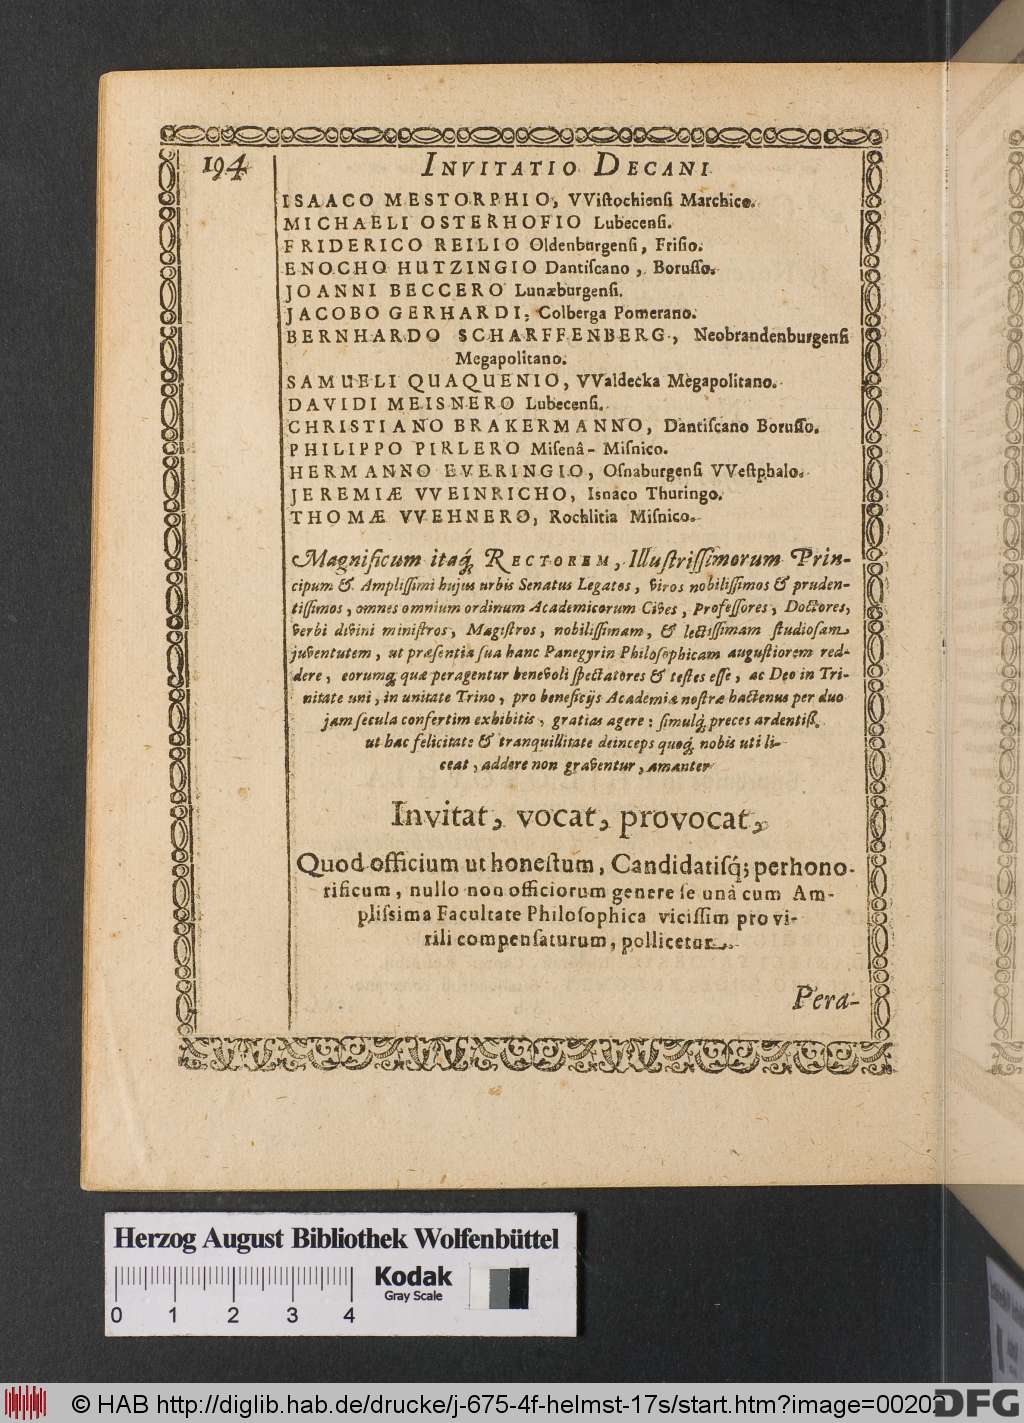 194 INVITATIO DECANI
ISAACO MESTORPHIO, VVistochiensi Marchico.
MICHAELI OSTERHOFIO Lubecensi.
FRIDERICO REILIO Oldenburgensi, Frisio.
ENOCHO HUTZINGIO Dantiscano, Borusso.
JOANNI BECCERO Lunæburgensi.
JACOBO GERHARDI, Colberga Pomerano.
BERNHARDO SCHARFFENBERG, Neobrandenburgensi
Megapolitano.
SAMUELI QUAQUENIO, VValdecka Megapolitano.
DAVIDI MEISNERO Lubecensi.
CHRISTIANO BRAKERMANNO, Dantiscano Borusso.
PHILIPPO PIRLERO Misenâ-Misnico.
HERMANNO EVERINGIO, Osnaburgensi VVestphalo.
JEREMIÆ VVEINRICHO, Isnaco Thuringo.
THOMÆ VVEHNERO, Rochlitia Misnico.
Magnificum itaq́; RECTOREM, Illustrissimorum Prin-
cipum & Amplissimi hujus urbis Senatus Legatos, viros nobilissimos & pruden-
tissimos, omnes omnium ordinum Academicorum Cives, Professores, Doctores,
verbi divini ministros, Magistros, nobilissimam, & lectissimam studiosam
juventutem, ut præsentia sua hanc Panegyrin Philosophicam augustiorem red-
dere, eorumq; quæ peragentur benevoli spectatores & testes esse, ac Deo in Tri-
nitate uni, in unitate Trino, pro beneficijs Academiæ nostræ hactenus per duo
jam secula confertim exhibitis, gratias agere: simulq́; preces ardentiss.
ut hac felicitate & tranquillitate deinceps quoq́; nobis uti li-
ceat, addere non graventur, amanter
Invitat, vocat, provocat,
Quod officium ut honestum, Candidatisq́; perhono-
rificum, nullo non officiorum genere se unà cum Am-
plissima Facultate Philosophica vicissim pro vi-
rili compensaturum, pollicetur.
Pera-
Herzog August Bibliothek Wolfenbüttel
Kodak
Gray Scale
0 1 2 3 4
© HAB http://diglib.hab.de/drucke/j-675-4f-helmst-17s/start.htm?image=00202
DFG